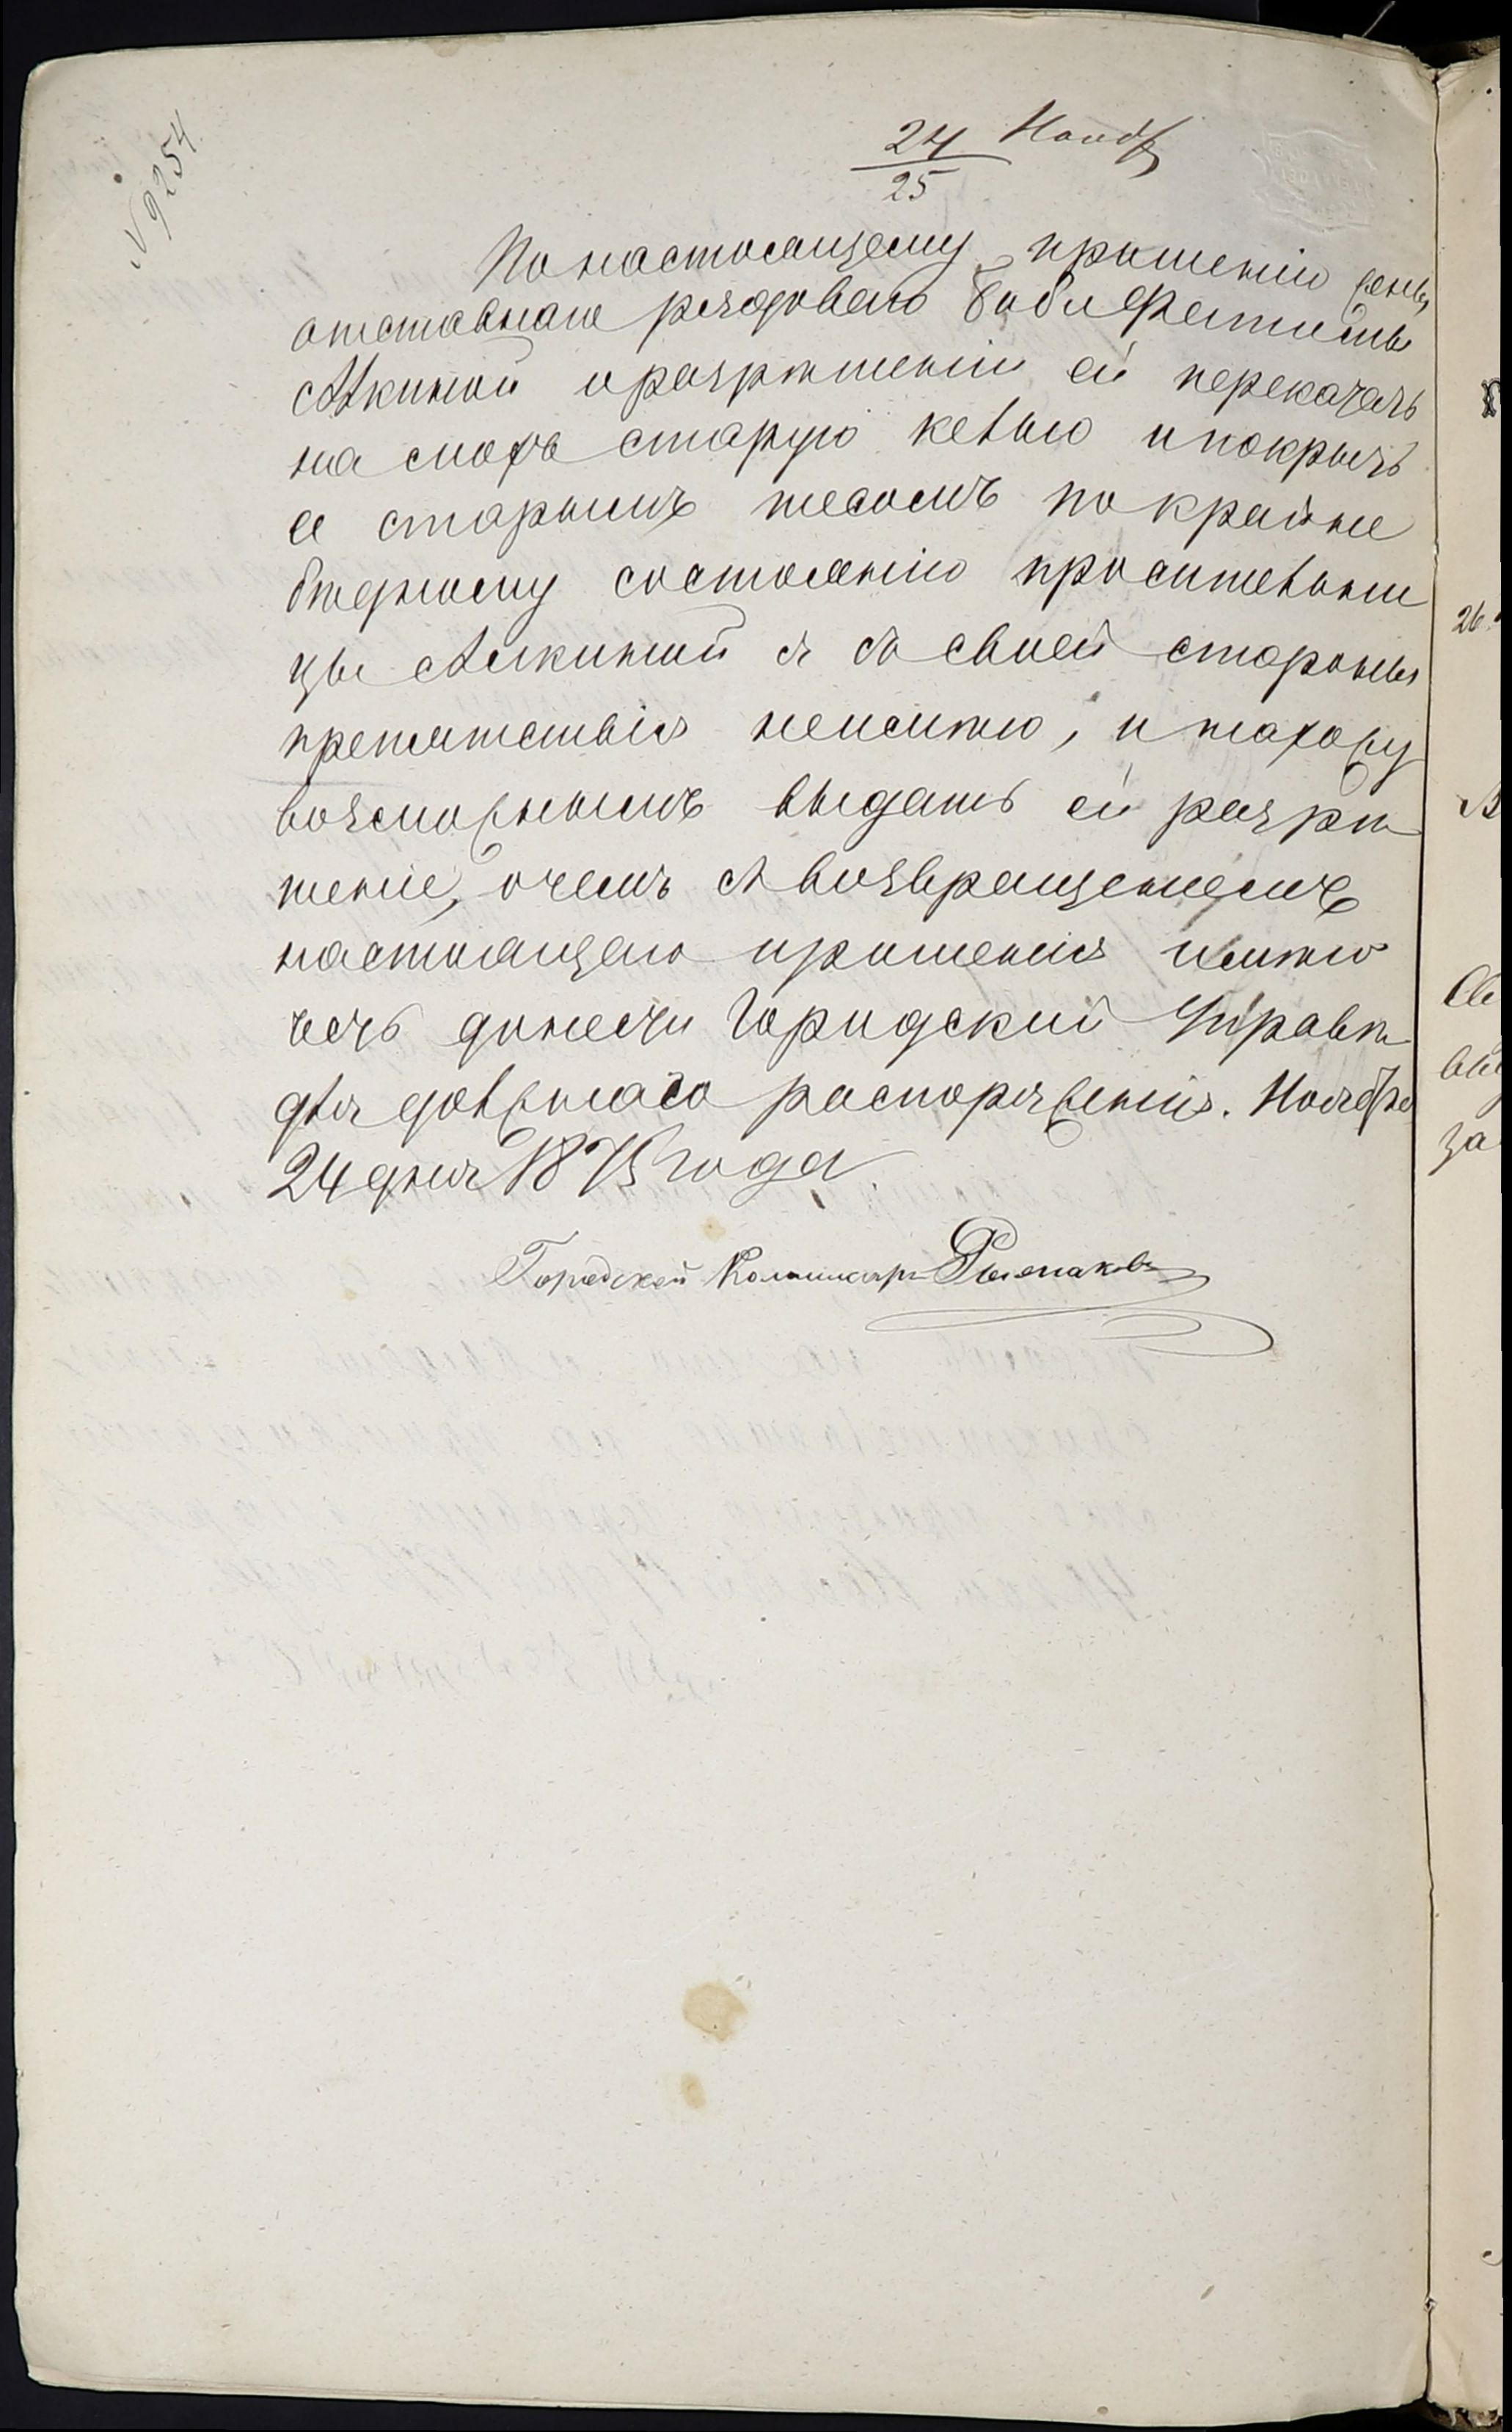 N 9254
24 Ноябр
25
По настоящему прошенію жены
отставнаго рядоваго Биби Фатимы
Аикиной о разрѣшеніи ей перекатать
на мохъ старую келью и покрыть
ее старымъ тесомъ по крайне
бѣдному состоянію просительни
цы Аикиной я со своей стороны
препятствія неимѣю, и нахожу
возможнымъ выдать ей разрѣ
шеніе, о чемъ съ возвращеніемъ
настоящаго прошенія имѣю
честь донести Городской Управѣ
для должнаго распоряженія. Ноября
24 дня 1875 года.
Городской Комиссаръ